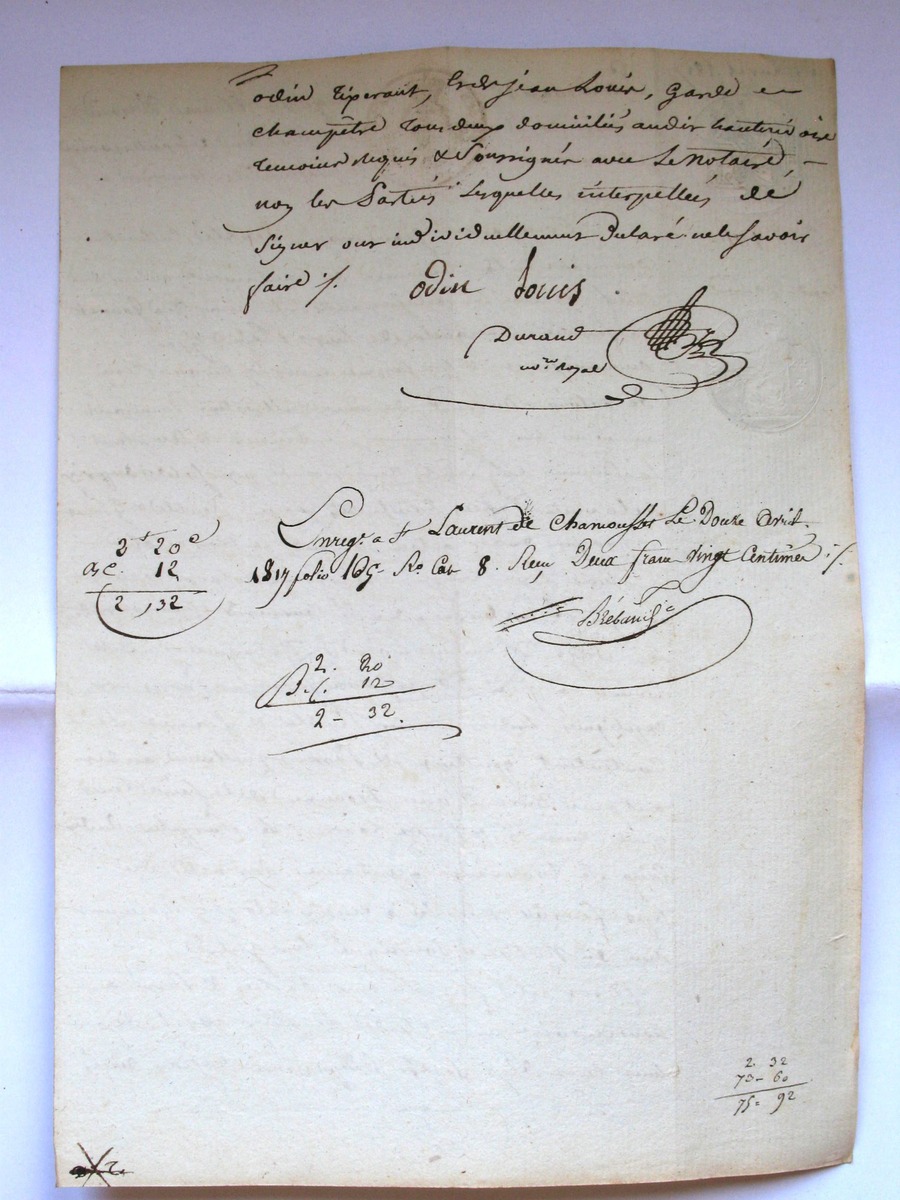 odin tiserant, & de jean Louis, garde
champêtre tous deux domiciliés audit hauterivoire
temoins requis & soussignés avec le notaire
non les Parties lesquelles interpellées de
signer ont individuellement declaré ne le savoir
faire ./.
odin louis
Durand
nore Royal
Enregé a St Laurent de Chamousset Le Douze avril
1817 folio 165 Ro Cas 8. Reçu Deux francs vingt Centimes ./.
2f 20c
12
2, 32
2. 20
12
2 - 32.
2 32
73 - 60
75 = 92